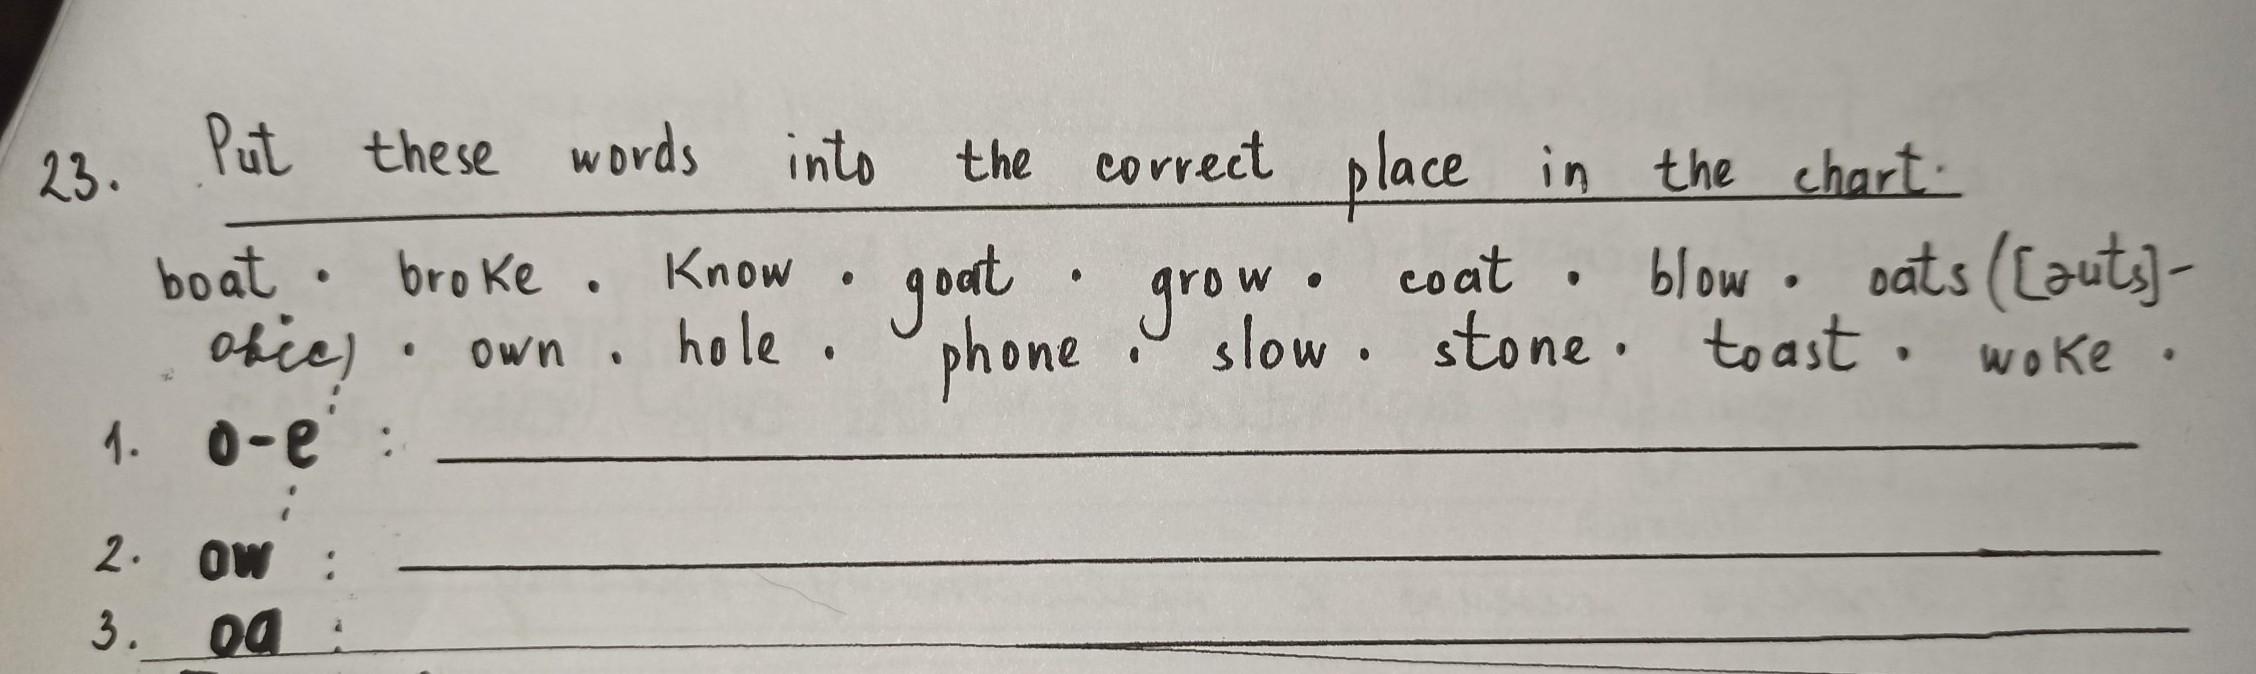 23. Put these words into the correct place in the chart.
boat • broke • know • goat • grow • coat • blow • oats ([əuts]-
овіс) • own • hole • phone • slow • stone • toast • woke •
1. o-e :
2. ow :
3. oa :